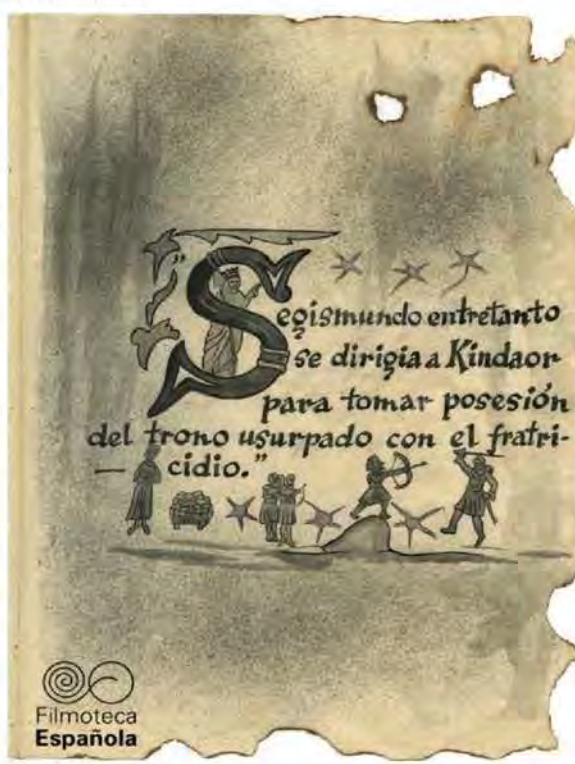 "Segismundo entretanto
se dirigia a Kindaor
para tomar posesión
del trono usurpado con el fratri-
cidio."
Filmoteca
Española